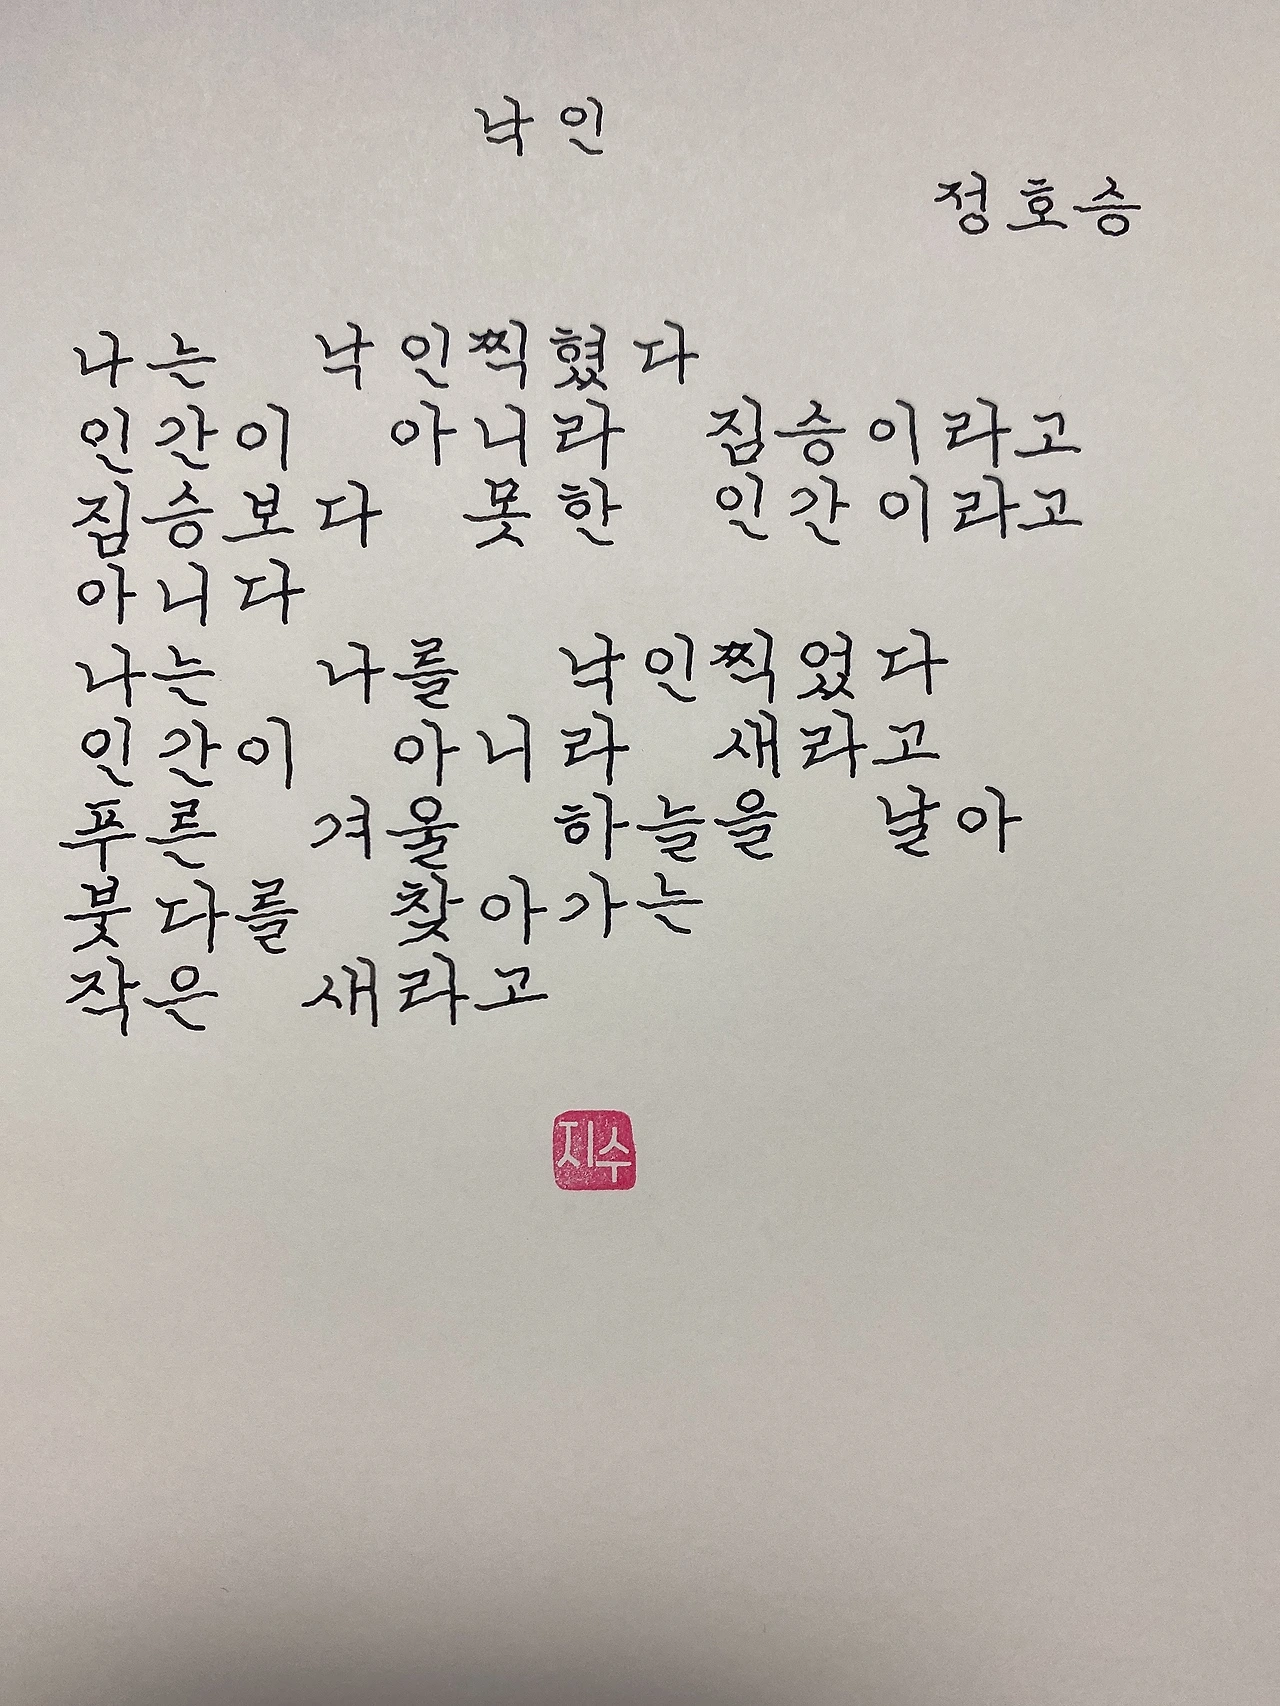 낙인
정호승
나는 낙인찍혔다
인간이 아니라 짐승이라고
짐승보다 못한 인간이라고
아니다
나는 나를 낙인찍었다
인간이 아니라 새라고
푸른 겨울 하늘을 날아
붓다를 찾아가는
작은 새라고
지수